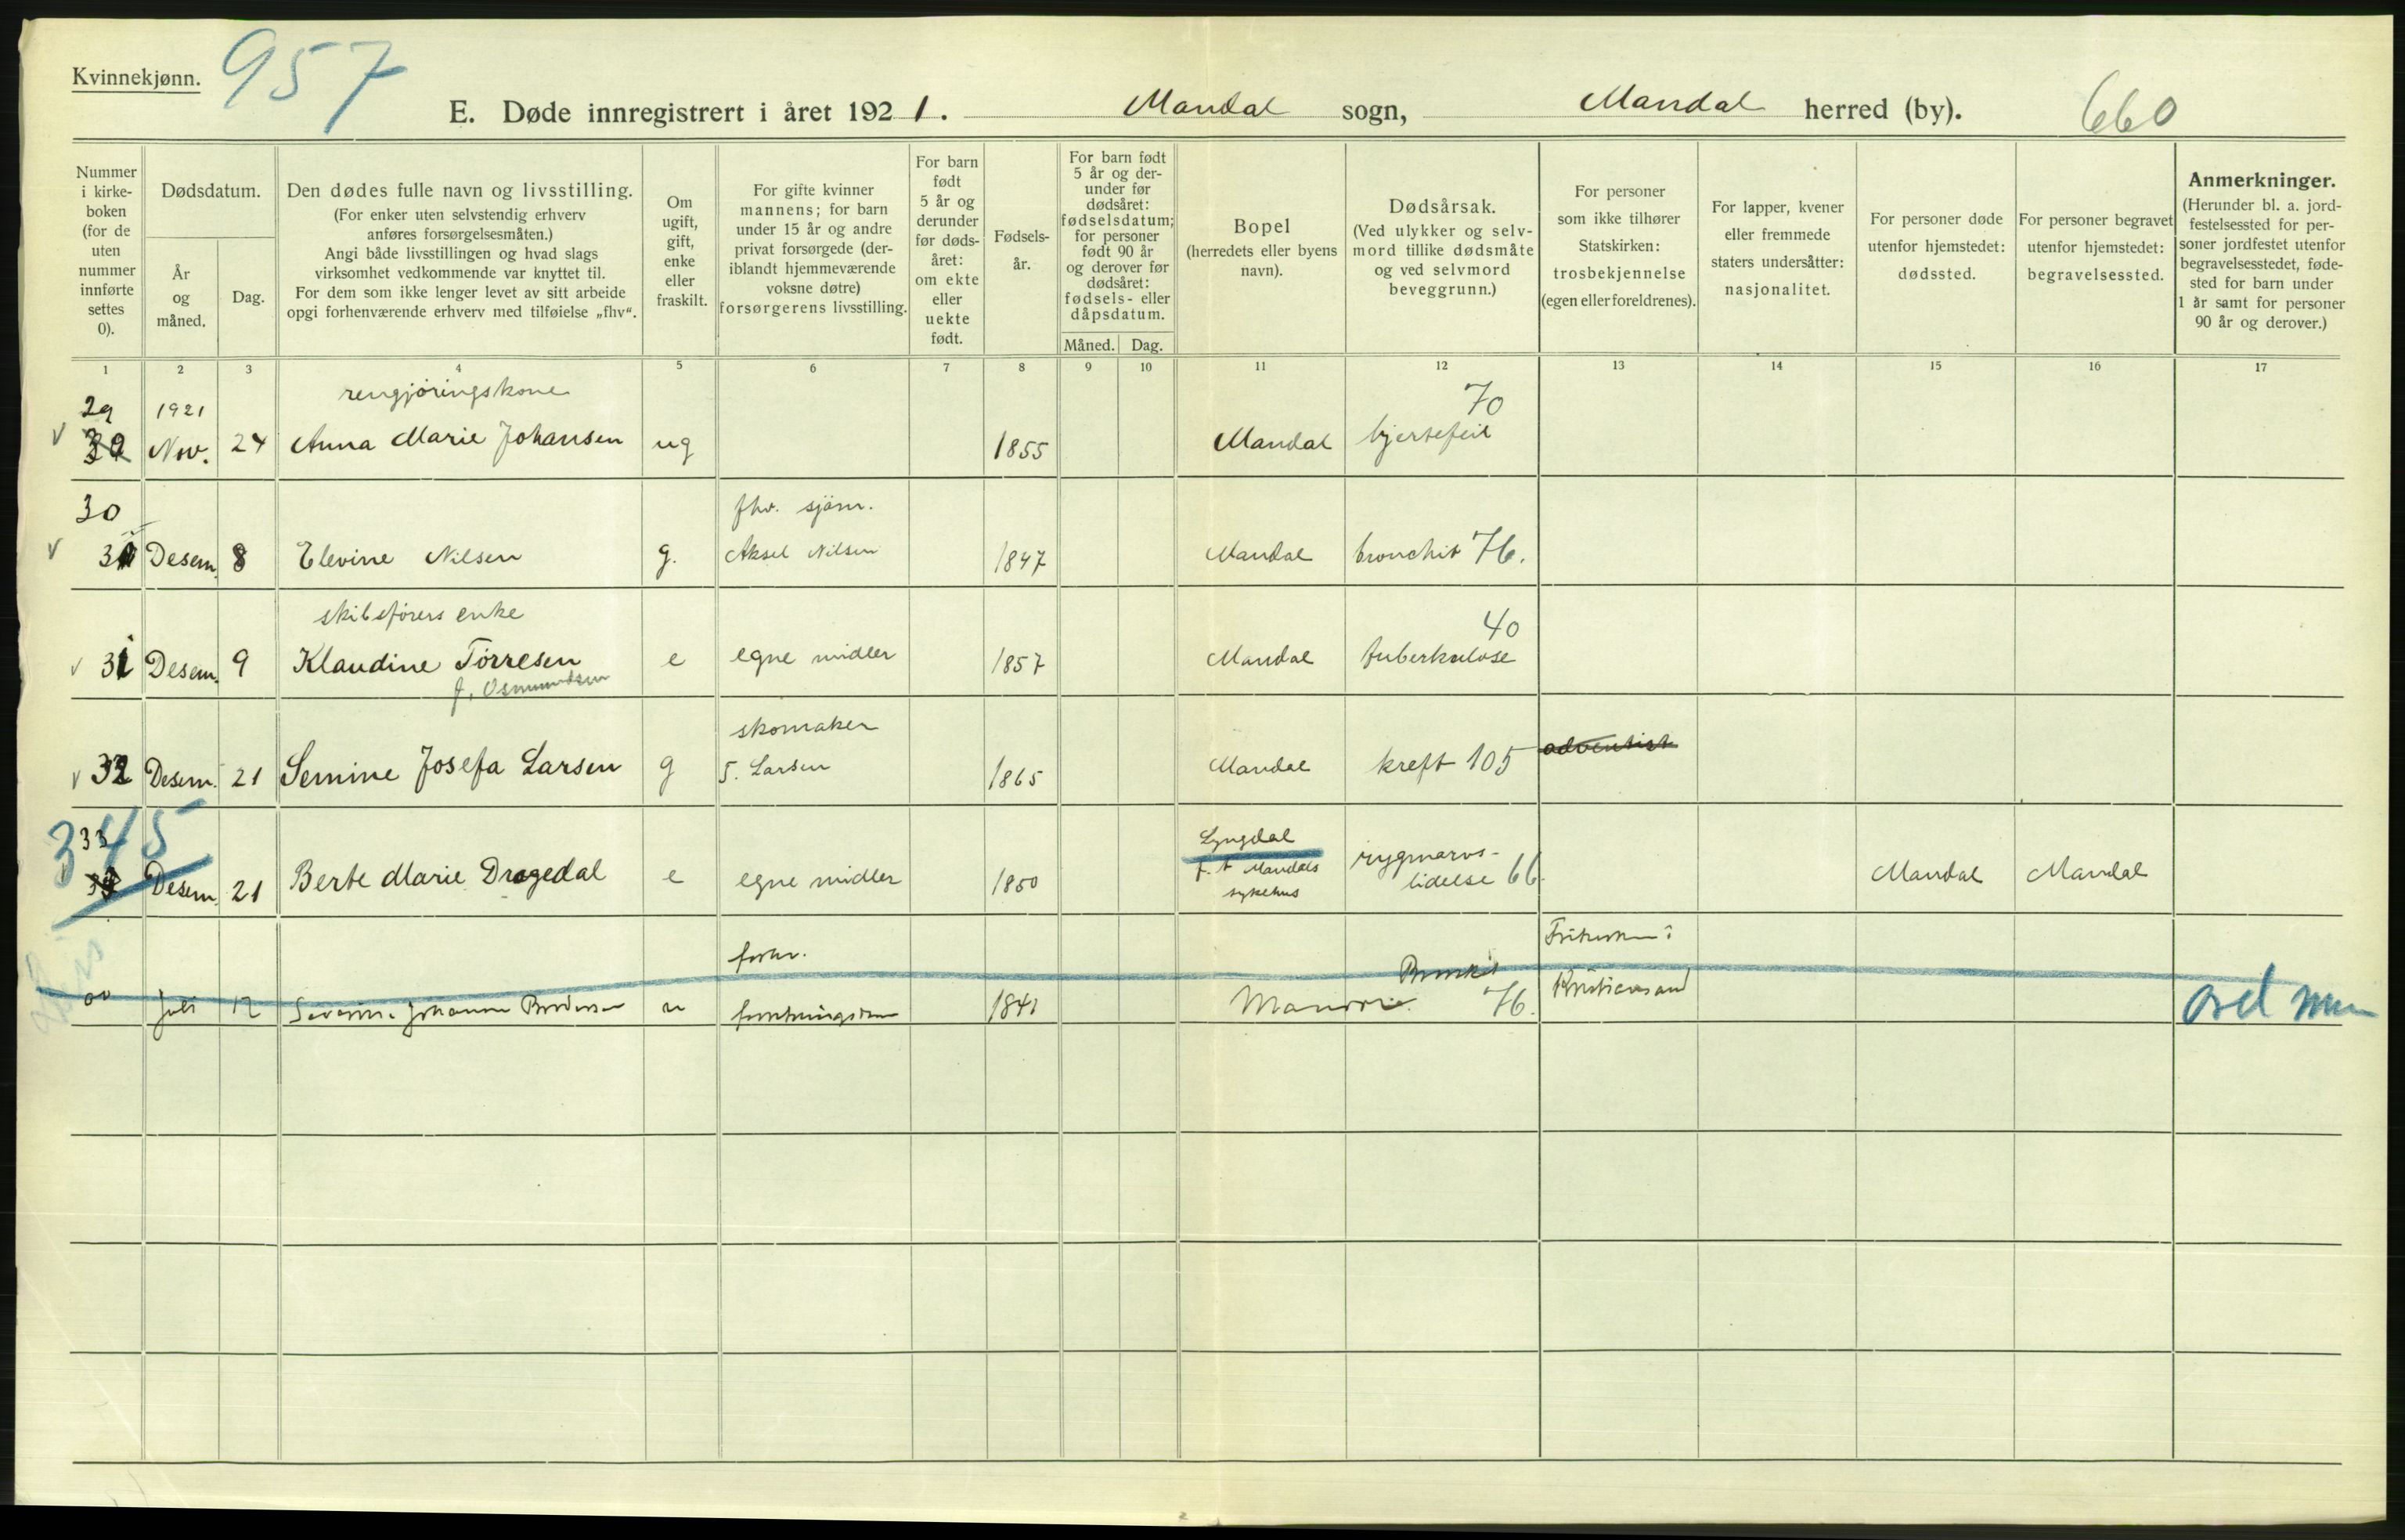 Kvinnekjønn.
957
E. Døde innregistrert i året 1921. Mandal sogn, Mandal herred (by).
660
Nummer i kirke-boken (for de uten nummer innførte settes 0).
Dødsdatum.
År og måned.
Dag.
Den dødes fulle navn og livsstilling.
(For enker uten selvstendig erhverv
anføres forsørgelsesmåten.)
Angi både livsstillingen og hvad slags
virksomhet vedkommende var knyttet til.
For dem som ikke lenger levet av sitt arbeide
opgi forhenværende erhverv med tilføielse „fhv“.
Om ugift, gift, enke eller fraskilt.
For gifte kvinner
mannens; for barn
under 15 år og andre
privat forsørgede (der-
iblandt hjemmeværende
voksne døtre)
forsørgerens livsstilling.
For barn født 5 år og derunder før døds-året: om ekte eller uekte født.
Fødsels-år.
For barn født
5 år og der-
under før
dødsåret:
fødselsdatum;
for personer
født 90 år
og derover før
dødsåret:
fødsels- eller
dåpsdatum.
Måned. Dag.
Bopel
(herredets eller byens
navn).
Dødsårsak.
(Ved ulykker og selv-
mord tillike dødsmåte
og ved selvmord
beveggrunn.)
For personer
som ikke tilhører
Statskirken:
trosbekjennelse
(egen eller foreldrenes).
For lapper, kvener
eller fremmede
staters undersåtter:
nasjonalitet.
For personer døde
utenfor hjemstedet:
dødssted.
For personer begravet
utenfor hjemstedet:
begravelsessted.
Anmerkninger.
(Herunder bl. a. jord-
festelsessted for per-
soner jordfestet utenfor
begravelsesstedet, føde-
sted for barn under
1 år samt for personer
90 år og derover.)
1 2 3 4 5 6 7 8 9 10 11 12 13 14 15 16 17
29 1921 rengjøringskone 70
Nov. 24 Anna Marie Johansen ug 1855 Mandal hjertefeil
30 fhv. sjöm.
Desem. 8 Elevine Nilsen g. Aksel Nilsen 1847 Mandal bronchit 76.
skibsførers enke 40
31 Desem. 9 Klaudine Törresen e egne midler 1857 Mandal tuberkulose
f. Osmundsen
skomaker
32 Desem. 21 Semine Josefa Larsen g S. Larsen 1865 Mandal kreft 105 adventist
345
33 Lyngdal rygmarvs-
Desem. 21 Berte Marie Dragedal e egne midler 1850 f. t. Mandals lidelse 66 Mandal Mandal
sykehus
Juli 12 Johanne u 1841 76. Kristiansand